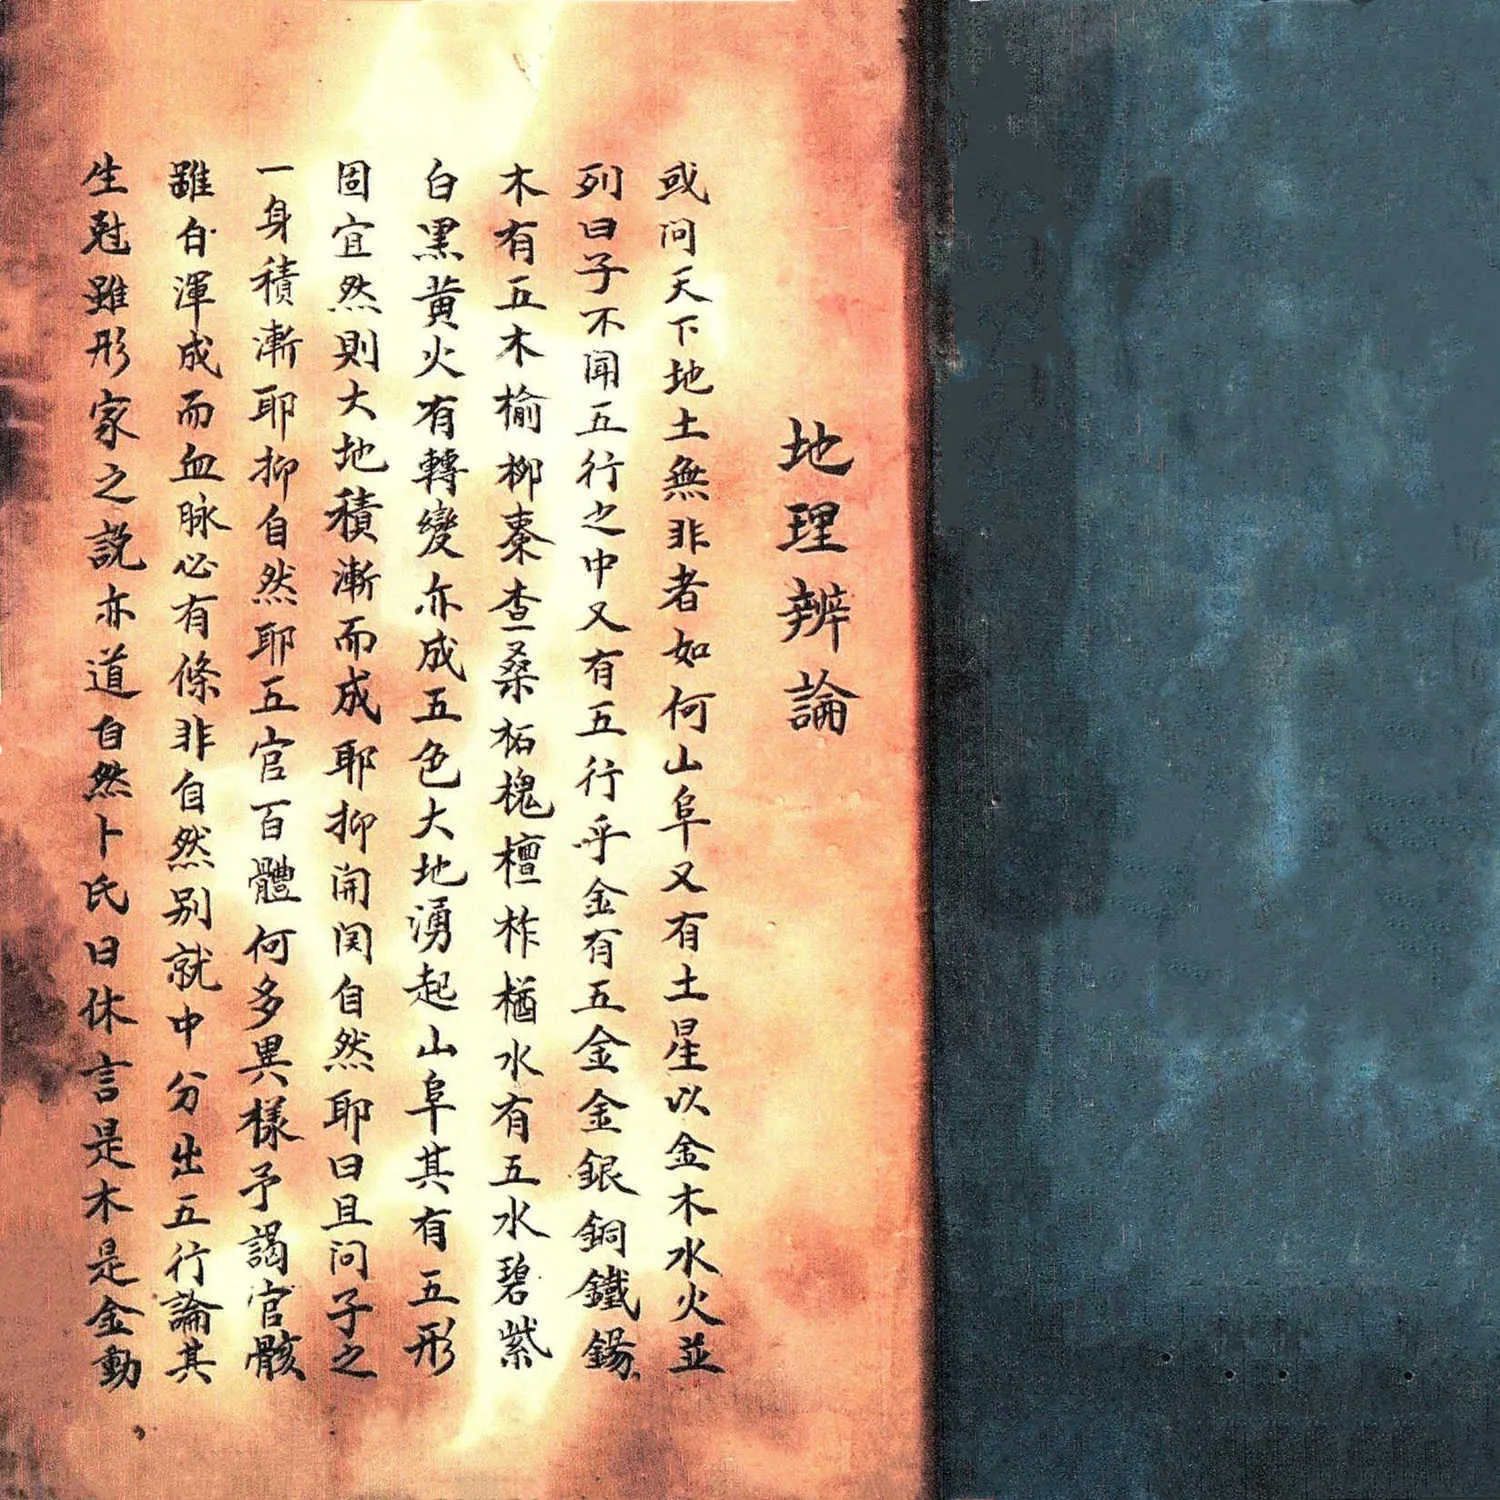 地理辨論
或问天下地土無非者如何山阜又有土星以金木水火並
列曰子不闻五行之中又有五行乎金有五金金銀銅鐵錫
木有五木榆柳棗查桑柘槐檀柞楢水有五水碧紫
白黑黄火有轉變亦成五色大地湧起山阜其有五形
固宜然則大地積漸而成耶抑闭関自然耶曰且问子之
一身積漸耶抑自然耶五官百體何多異樣予謁官骸
雖自渾成而血脉必有條非自然别就中分出五行論其
生尅雖形家之説亦道自然卜氏曰休言是木是金動